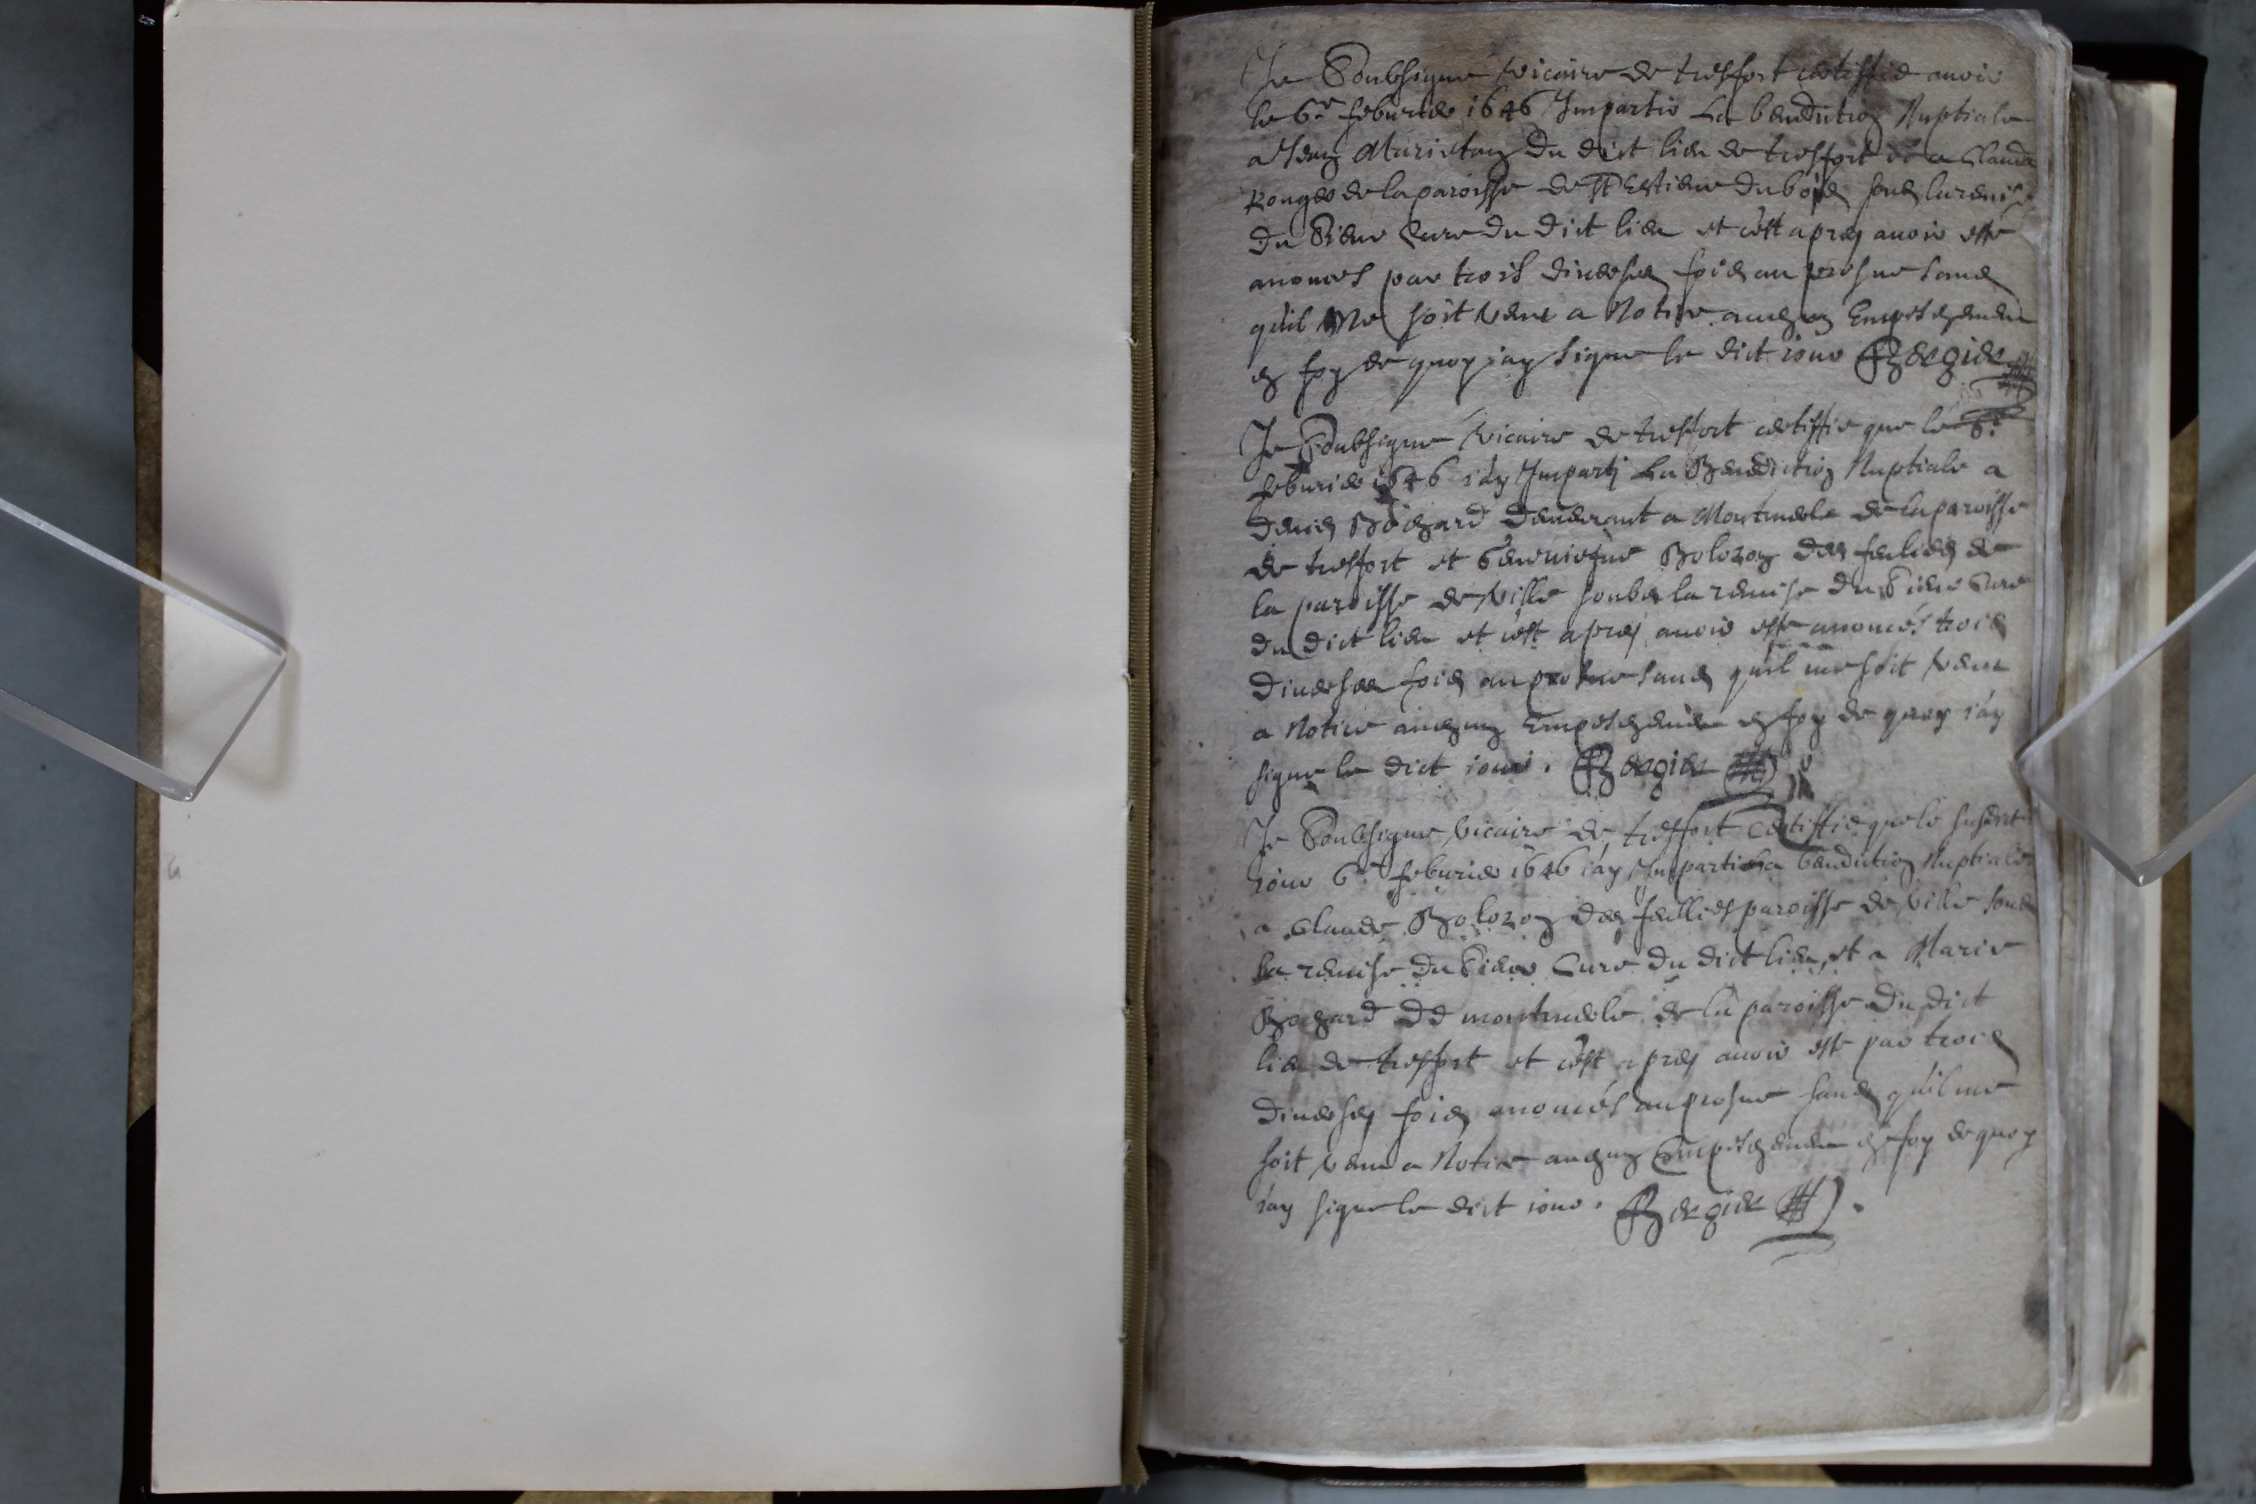 Je Soubsigne vicaire de tresfort certiffie avoir
le 6.e feburier 1646 Imparti La benediction Nuptiale
a Jean Marietan du dict lieu de tresfort et a Claude
de la paroisse de St Estiene du bois soubs la remise
du Sieur Cure du dict lieu et c'est apres avoir este
anonces par trois diverses fois au prosne sans
quil Me soit venu a Notice aucun Empeschement
en foy de quoy jay signe le dict jour Bergier
Je Soubsigne vicaire de tresfort certiffie que le 6.e
feburier 1646 j'ay Imparti La Benediction Nuptiale a
Denis Bochard demeurant a Montmerle de la paroisse
de tresfort et Bolozon des feulies de
la paroisse de ville soubs la remise du Sieur Cure
du dict lieu et c'est apres avoir este anonces trois
diverses fois au prosne sans quil me soit venu
a Notice aucun Empeschement en foy de quoy j'ay
signe le dict jour. Bergier
Je Soubsigne vicaire de tresfort Certiffie que le susdict
jour 6.e feburier 1646 j'ay Imparti La benediction Nuptiale
a Claude Bolozon des feullies paroisse de ville soubs
la remise du Sieur Cure du dict lieu, et a Marie
Bochard de montmerle de la paroisse du dict
lieu de tresfort et c'est apres avoir este par trois
diverses fois anonces au prosne sans quil me
soit venu a Notice aucun Empeschement en foy de quoy
j'ay signe le dict jour. Bergier